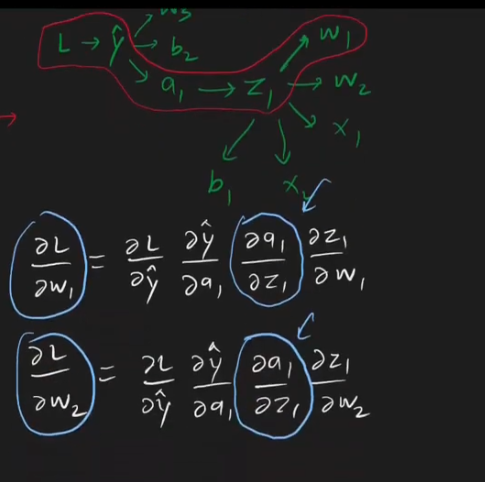 w3
L → ŷ → b₂
w₁
a₁ → z₁ → w₂
x₁
b₁
∂L/∂w₁ = ∂L/∂ŷ ∂ŷ/∂a₁ ∂a₁/∂z₁ ∂z₁/∂w₁
∂L/∂w₂ = ∂L/∂ŷ ∂ŷ/∂a₁ ∂a₁/∂z₁ ∂z₁/∂w₂